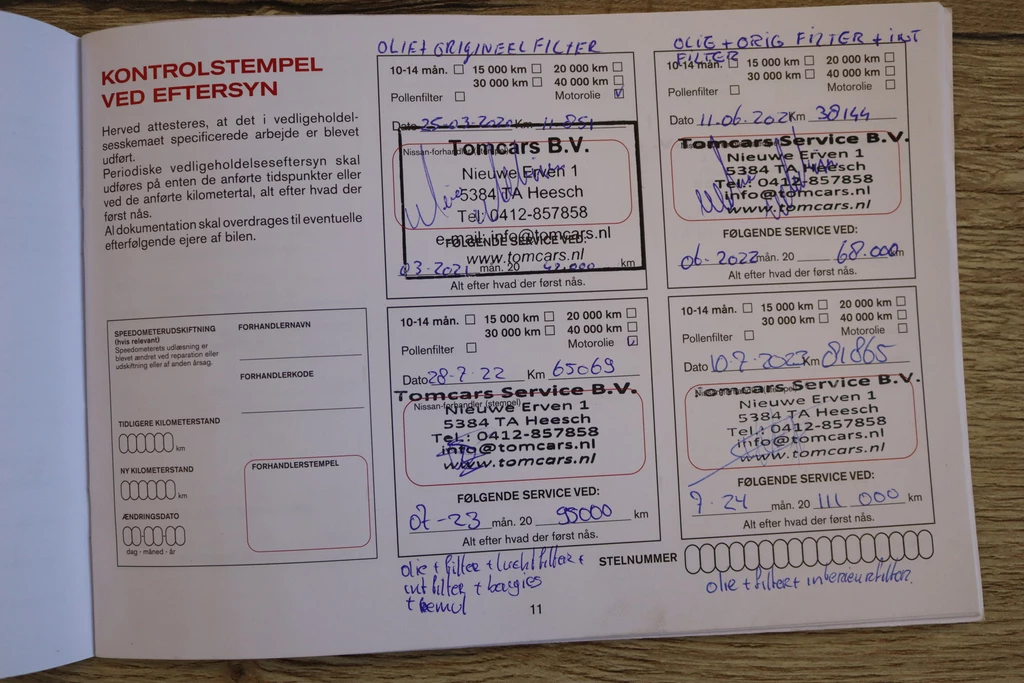 KONTROLSTEMPEL
VED EFTERSYN
Herved attesteres, at det i vedligeholdel-
sesskemaet specificerede arbejde er blevet
udført.
Periodiske vedligeholdelseseftersyn skal
udføres på enten de anførte tidspunkter eller
ved de anførte kilometertal, alt efter hvad der
først nås.
Al dokumentation skal overdrages til eventuelle
efterfølgende ejere af bilen.
SPEEDOMETERUDSKIFTNING
(hvis relevant)
Speedometerets udlæsning er
blevet ændret ved reparation eller
udskiftning eller af anden årsag.
FORHANDLERNAVN
FORHANDLERKODE
TIDLIGERE KILOMETERSTAND
km
NY KILOMETERSTAND
km
ÆNDRINGSDATO
dag - måned - år
FORHANDLERSTEMPEL
OLIE + ORIGINEEL FILTER
10-14 mån. 15 000 km 20 000 km
30 000 km 40 000 km
Pollenfilter Motorolie
Dato 25-03-2020 Km
Nissan-forhandler
Tomcars B.V.
Nieuwe Erven 1
5384 TA Heesch
Tel: 0412-857858
e-mail: info@tomcars.nl
FØLGENDE SERVICE VED:
www.tomcars.nl
03-2021 mån. 20 km
Alt efter hvad der først nås.
OLIE + ORIG FILTER + INT
FILTER
10-14 mån. 15 000 km 20 000 km
30 000 km 40 000 km
Pollenfilter Motorolie
Dato 11.06.2021 Km 38144
Tomcars Service B.V.
Nieuwe Erven 1
5384 TA Heesch
Tel.: 0412-857858
info@tomcars.nl
www.tomcars.nl
FØLGENDE SERVICE VED:
06-2022 mån. 20 68.000 km
Alt efter hvad der først nås.
10-14 mån. 15 000 km 20 000 km
30 000 km 40 000 km
Pollenfilter Motorolie
Dato 28-7-22 Km 65069
Tomcars Service B.V.
Nissan-forhandler (stempel)
Nieuwe Erven 1
5384 TA Heesch
Tel.: 0412-857858
info@tomcars.nl
www.tomcars.nl
FØLGENDE SERVICE VED:
07-23 mån. 20 95000 km
Alt efter hvad der først nås.
olie + filter + luchtfilter +
int filter + bougies
+ remvl
10-14 mån. 15 000 km 20 000 km
30 000 km 40 000 km
Pollenfilter Motorolie
Dato 10-7-2023 Km 81865
Tomcars Service B.V.
Nieuwe Erven 1
5384 TA Heesch
Tel.: 0412-857858
info@tomcars.nl
www.tomcars.nl
FØLGENDE SERVICE VED:
7-24 mån. 20 111 000 km
Alt efter hvad der først nås.
STELNUMMER
olie + filter + interieurfilter.
11